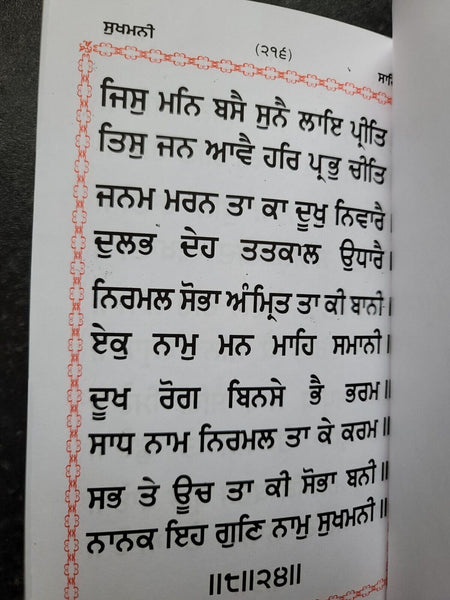 ਸੁਖਮਨੀ
(੨੧੯)
ਜਿਸੁ ਮਨਿ ਬਸੈ ਸੁਨੈ ਲਾਇ ਪ੍ਰੀਤਿ
ਤਿਸੁ ਜਨ ਆਵੈ ਹਰਿ ਪ੍ਰਭੁ ਚੀਤਿ
ਜਨਮ ਮਰਨ ਤਾ ਕਾ ਦੂਖੁ ਨਿਵਾਰੈ।
ਦੁਲਭ ਦੇਹ ਤਤਕਾਲ ਉਧਾਰੈ।
ਨਿਰਮਲ ਸੋਭਾ ਅੰਮ੍ਰਿਤ ਤਾ ਕੀ ਬਾਨੀ।
ਏਕੁ ਨਾਮੁ ਮਨ ਮਾਹਿ ਸਮਾਨੀ।
ਦੂਖ ਰੋਗ ਬਿਨਸੇ ਭੈ ਭਰਮ॥
ਸਾਧ ਨਾਮ ਨਿਰਮਲ ਤਾ ਕੇ ਕਰਮ॥
ਸਭ ਤੇ ਊਚ ਤਾ ਕੀ ਸੋਭਾ ਬਨੀ॥
ਨਾਨਕ ਇਹ ਗੁਣਿ ਨਾਮੁ ਸੁਖਮਨੀ॥
॥੮॥੨੪॥